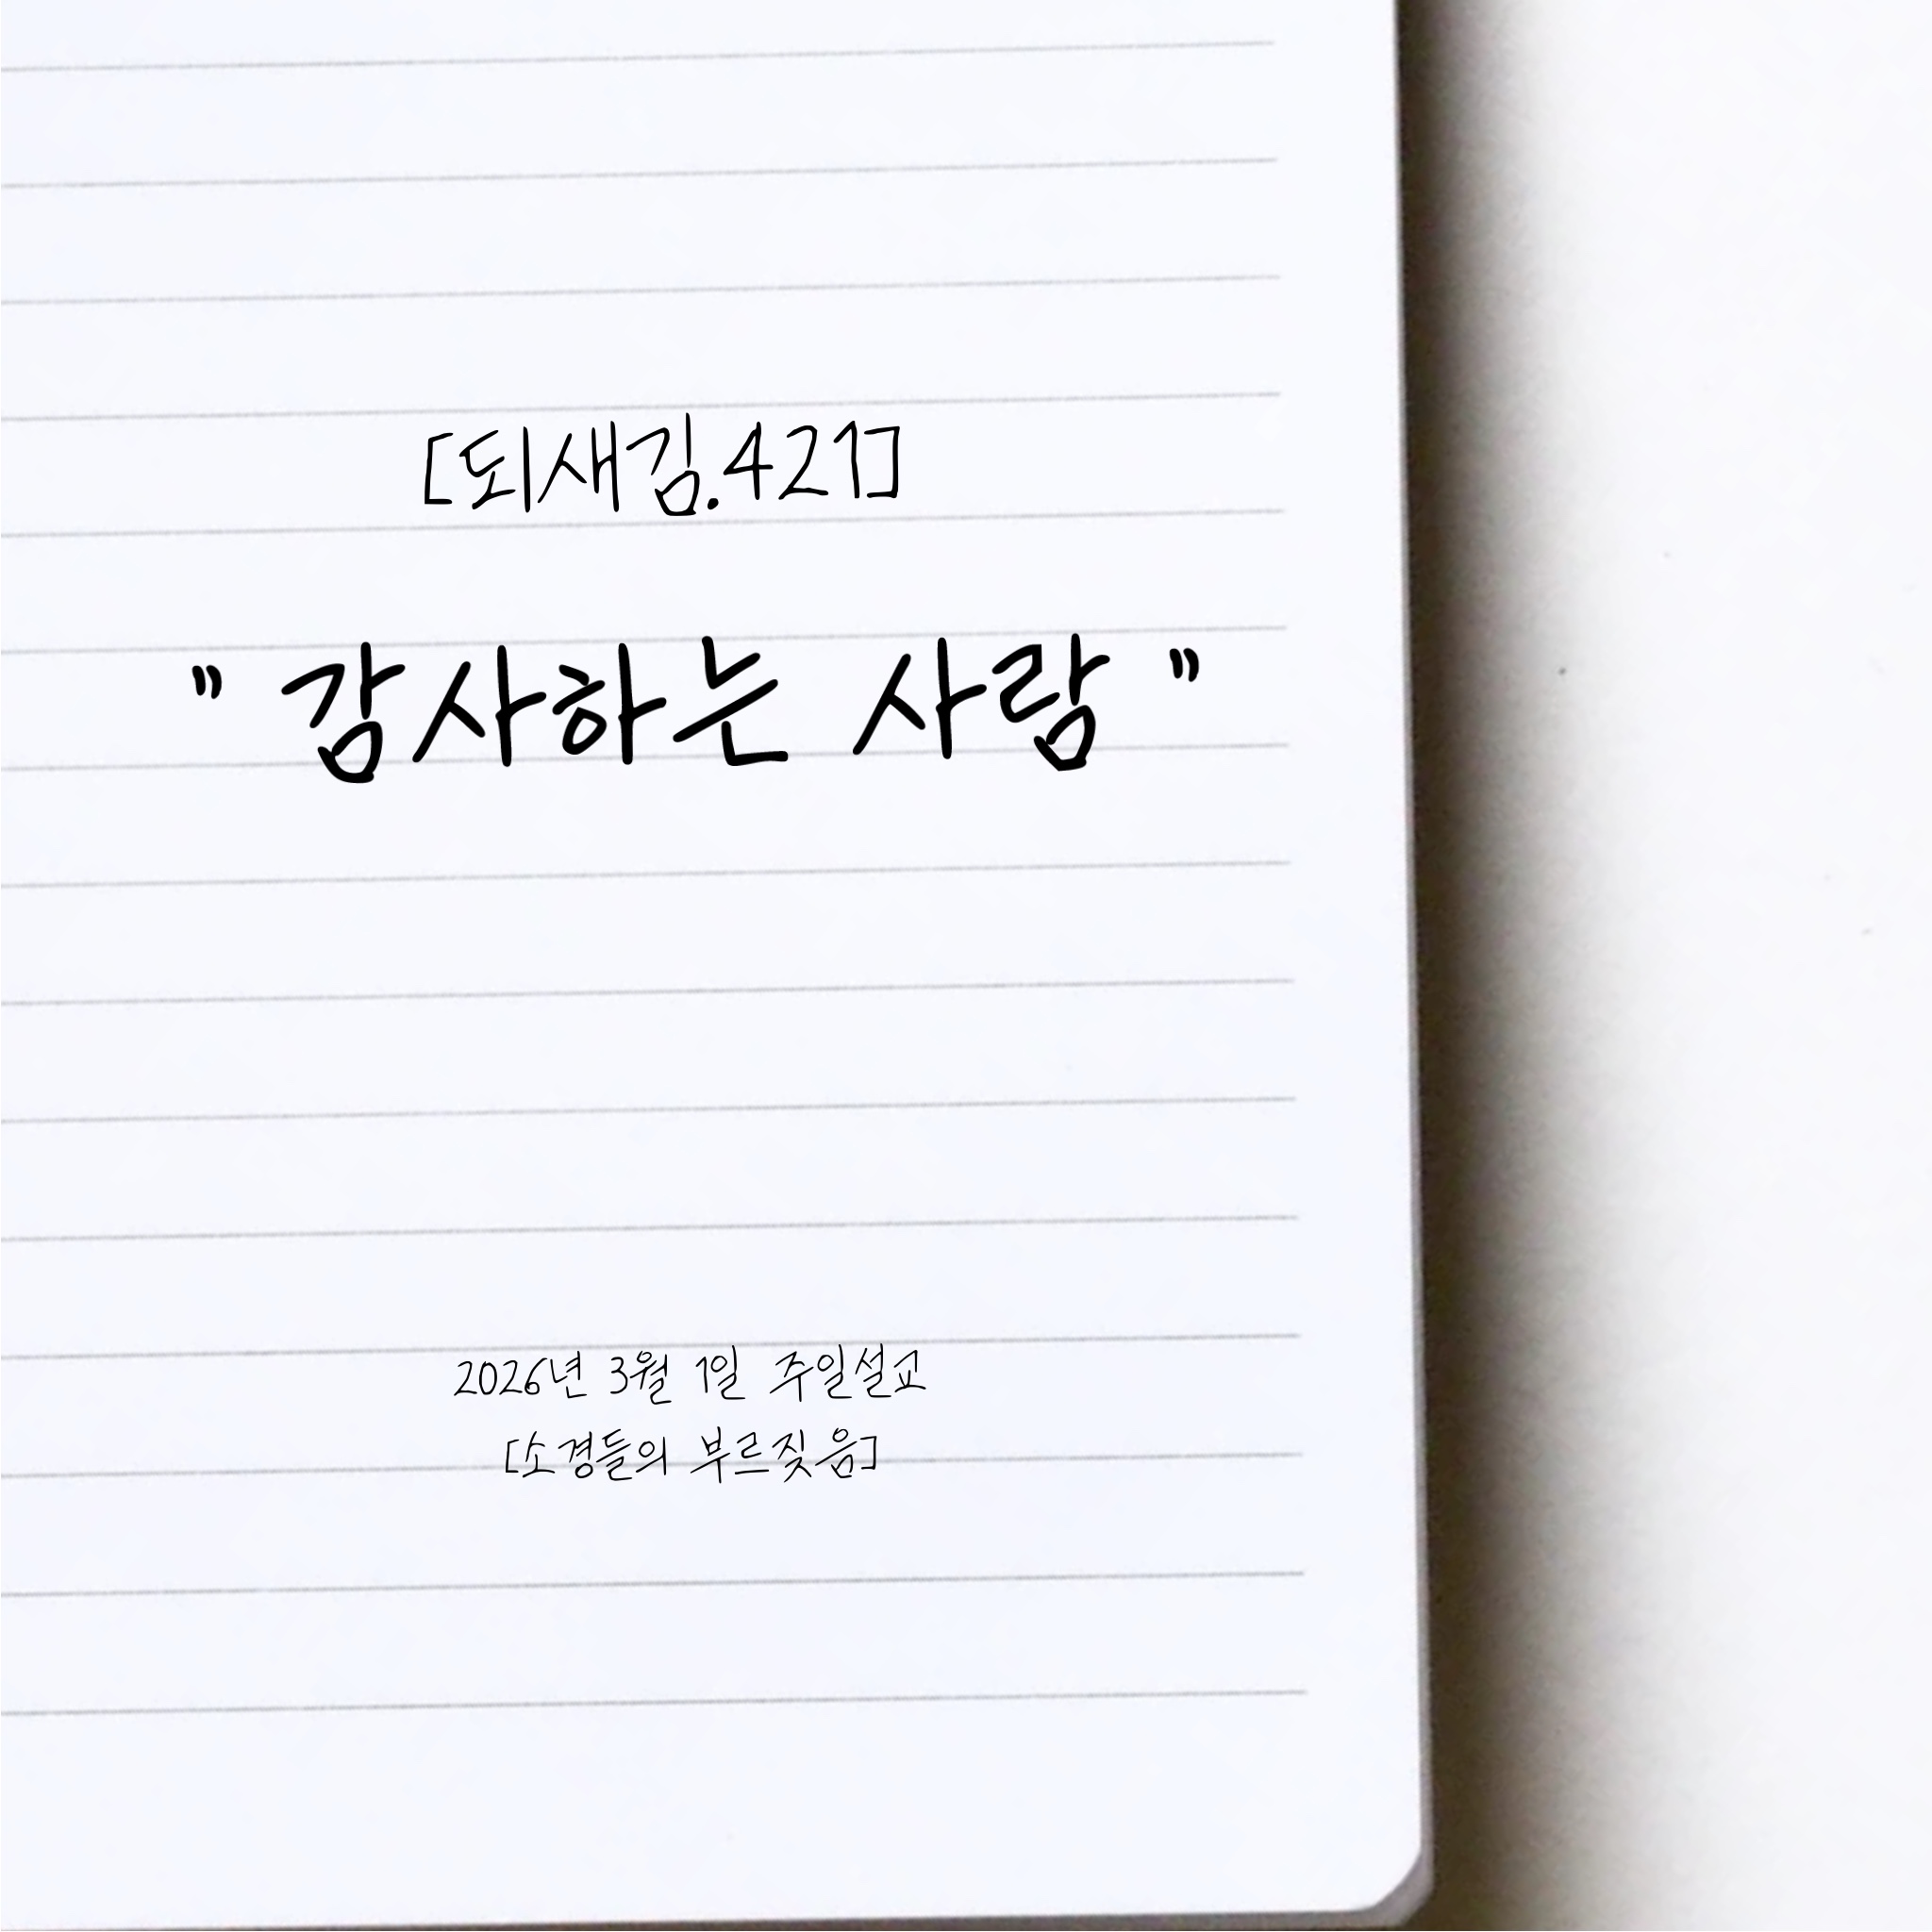 [되새김.421]
" 감사하는 사람 "
2026년 3월 1일 주일설교
[소경들의 부르짖음]